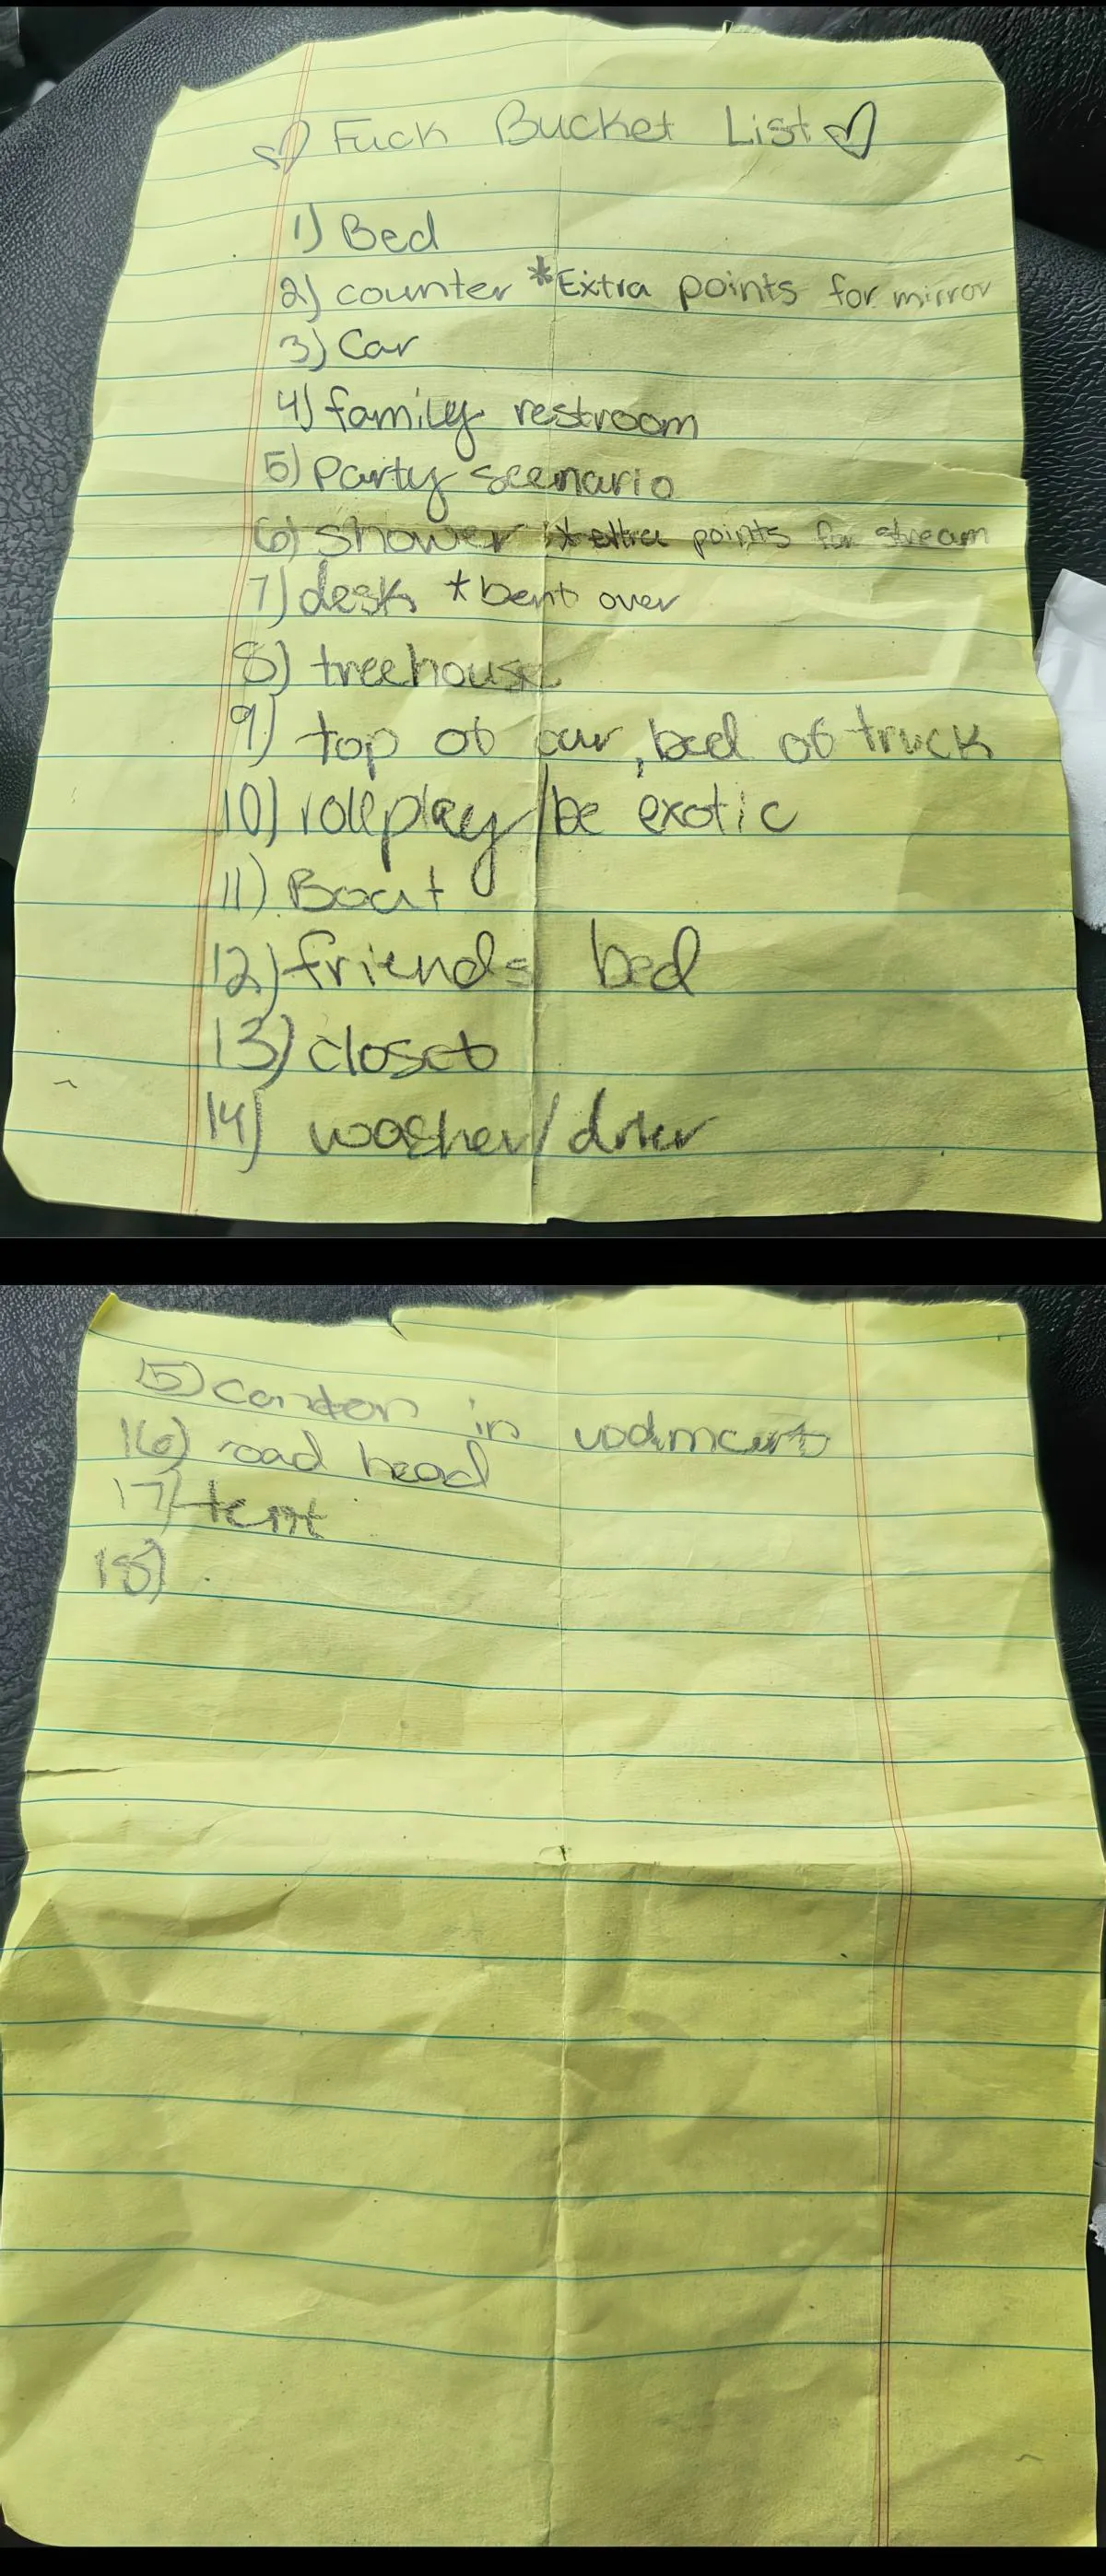 Fuck Bucket List
1) Bed
2) counter *Extra points for mirror
3) Car
4) family restroom
5) Party scenario
6) shower *extra points for stream
7) desk *bent over
8) treehouse
9) top of car, bed of truck
10) roleplay/be exotic
11) Boat
12) friends bed
13) closet
14) washer/drier
15) in
16) road head
17) tent
18)